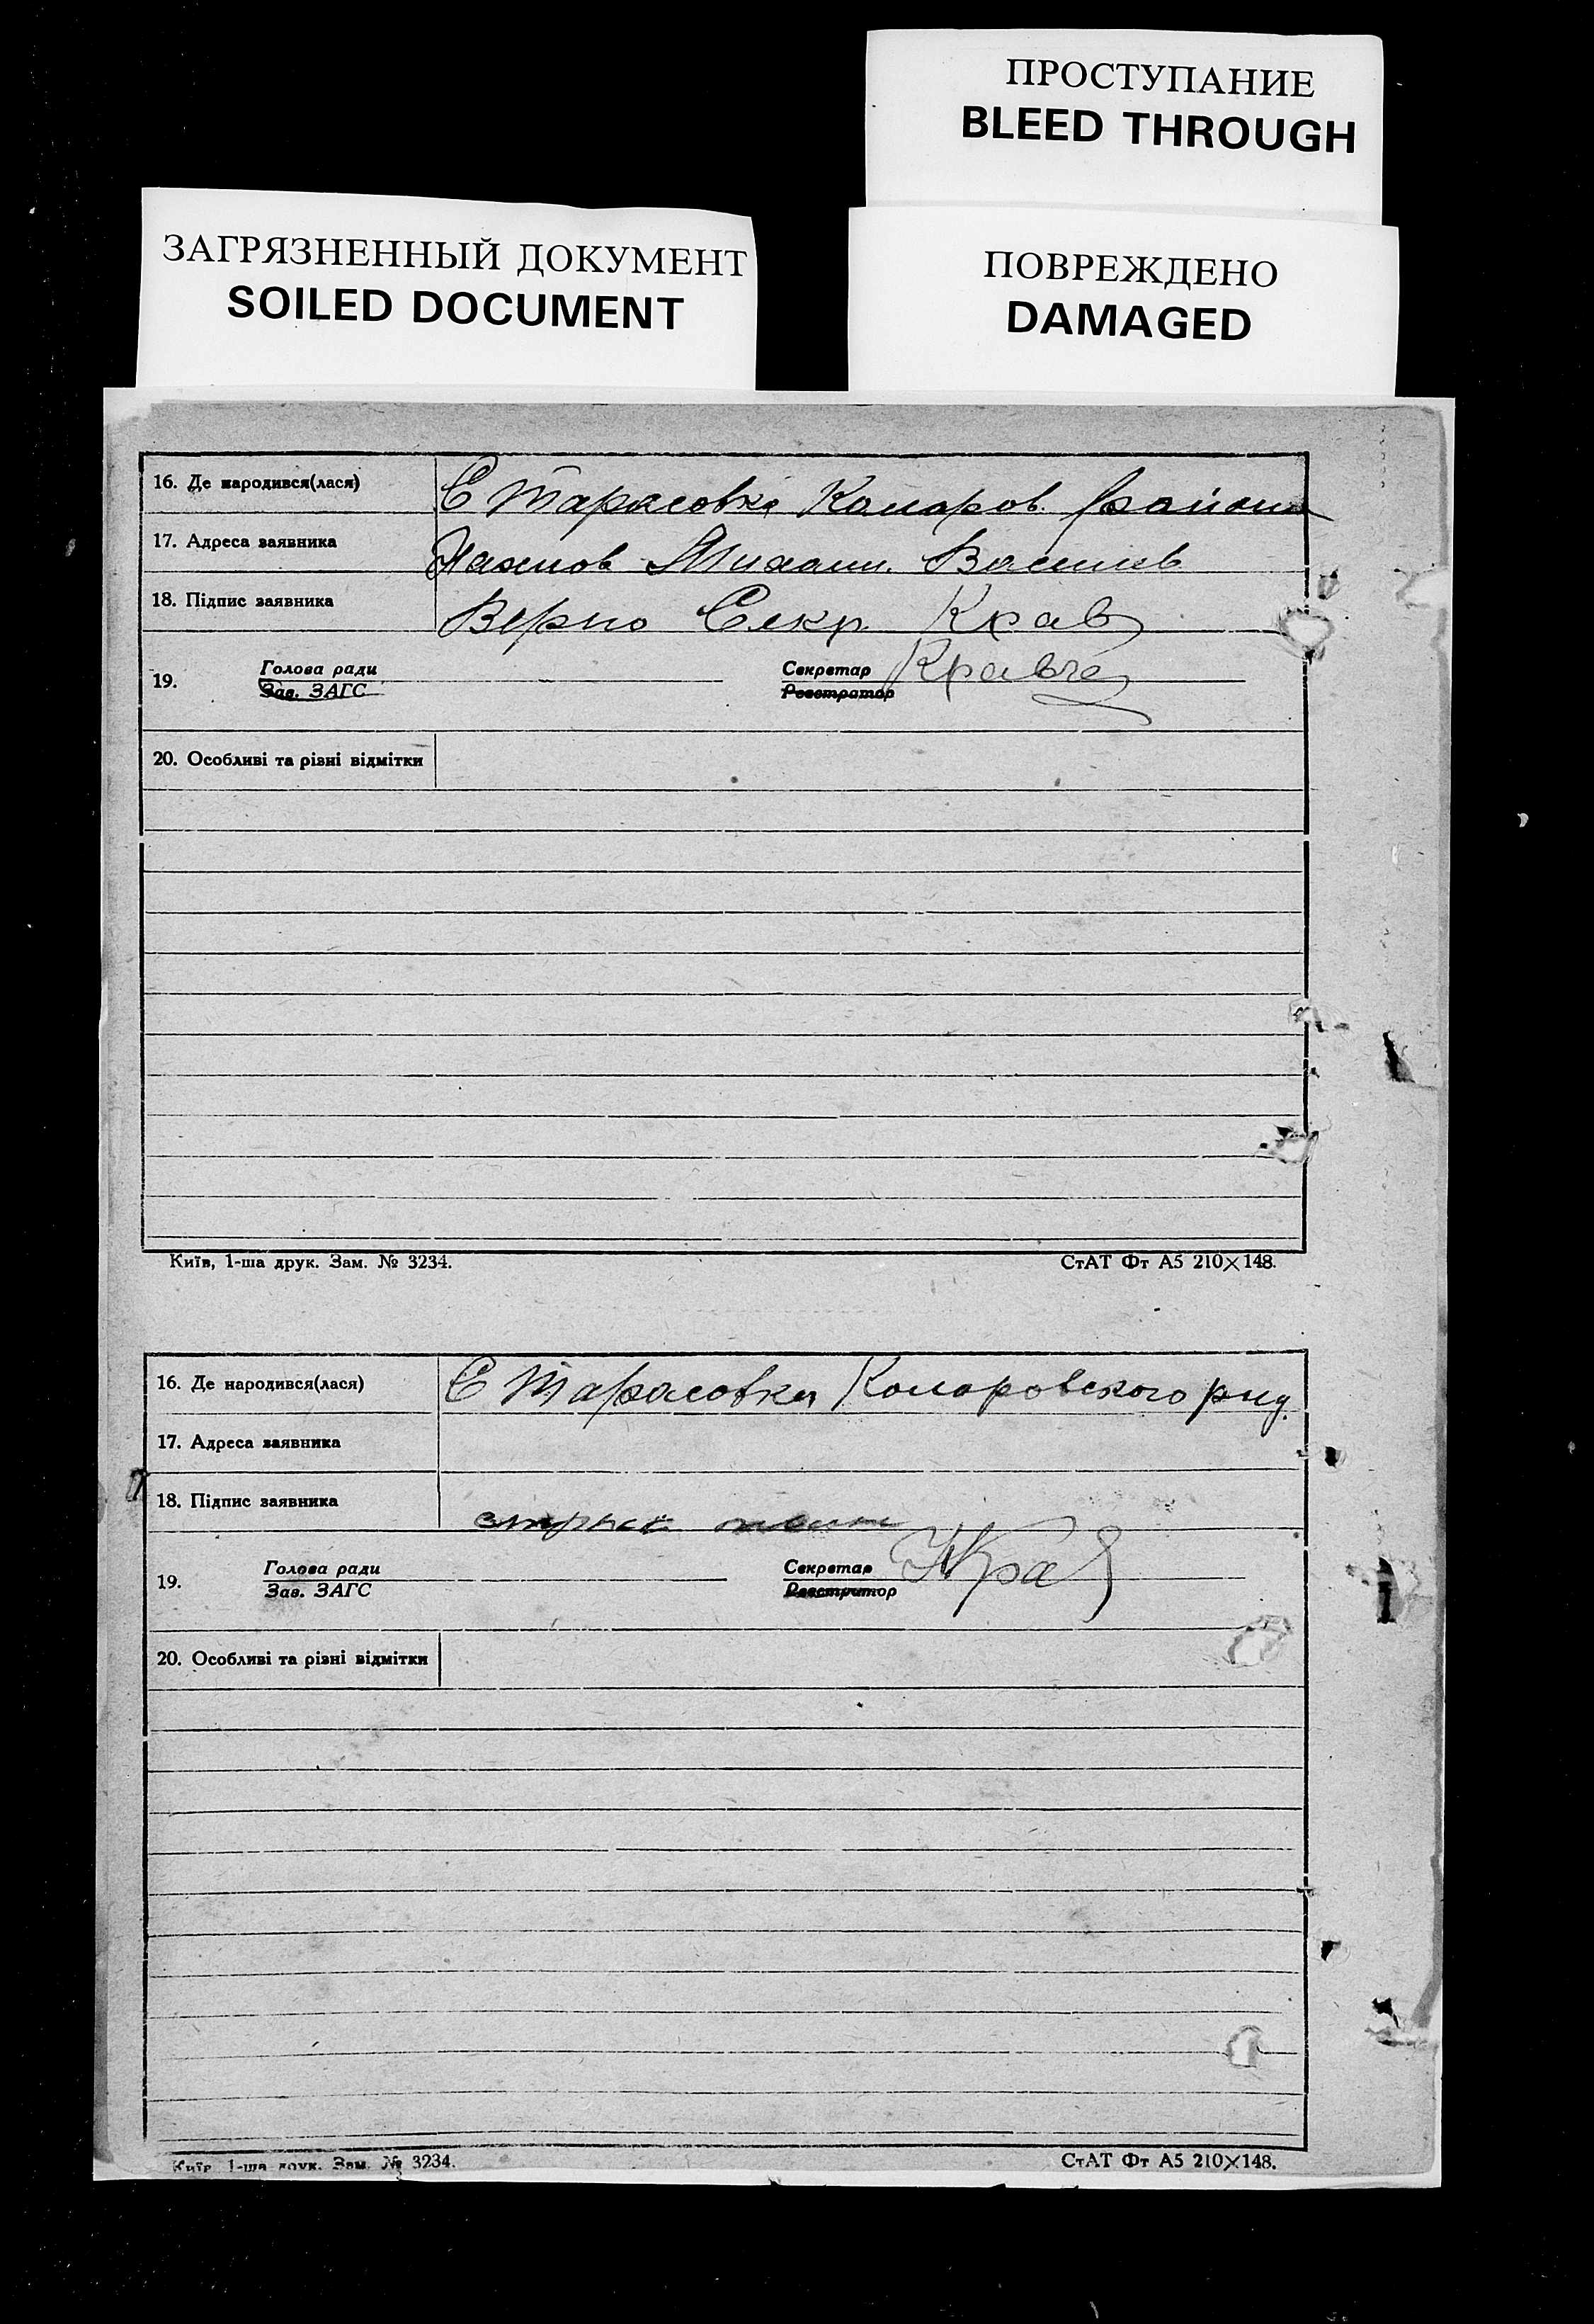 ПРОСТУПАНИЕ
BLEED THROUGH
ЗАГРЯЗНЕННЫЙ ДОКУМЕНТ
SOILED DOCUMENT
ПОВРЕЖДЕНО
DAMAGED
16. Де народився(лася) С Тарасовка Комаров. района
17. Адреса заявника
18. Підпис заявника Верно Секр. Крав
19. Голова ради Секретар Кравче
Зав. ЗАГС Реєстратор
20. Особливі та різні відмітки
Київ, 1-ша друк. Зам. № 3234. СтАТ Фт А5 210×148.
16. Де народився(лася) С Тарасовка Комаровского
17. Адреса заявника
18. Підпис заявника
19. Голова ради Секретар
Зав. ЗАГС Реєстратор
20. Особливі та різні відмітки
Київ, 1-ша друк. Зам. № 3234. СтАТ Фт А5 210×148.